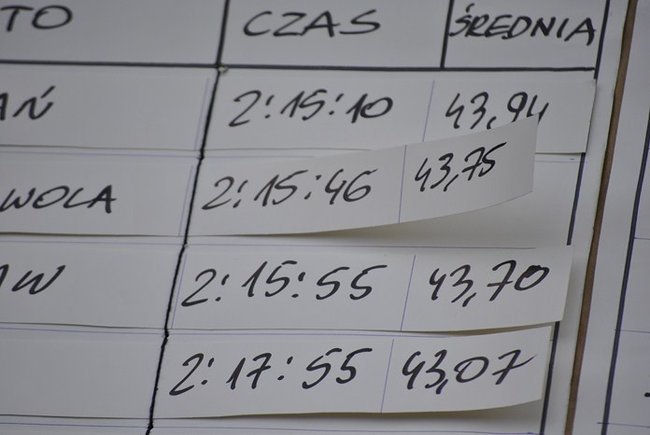 TO CZAS ŚREDNIA
AŃ 2:15:10 43,94
WOLA 2:15:46 43,75
AW 2:15:55 43,70
2:17:55 43,07